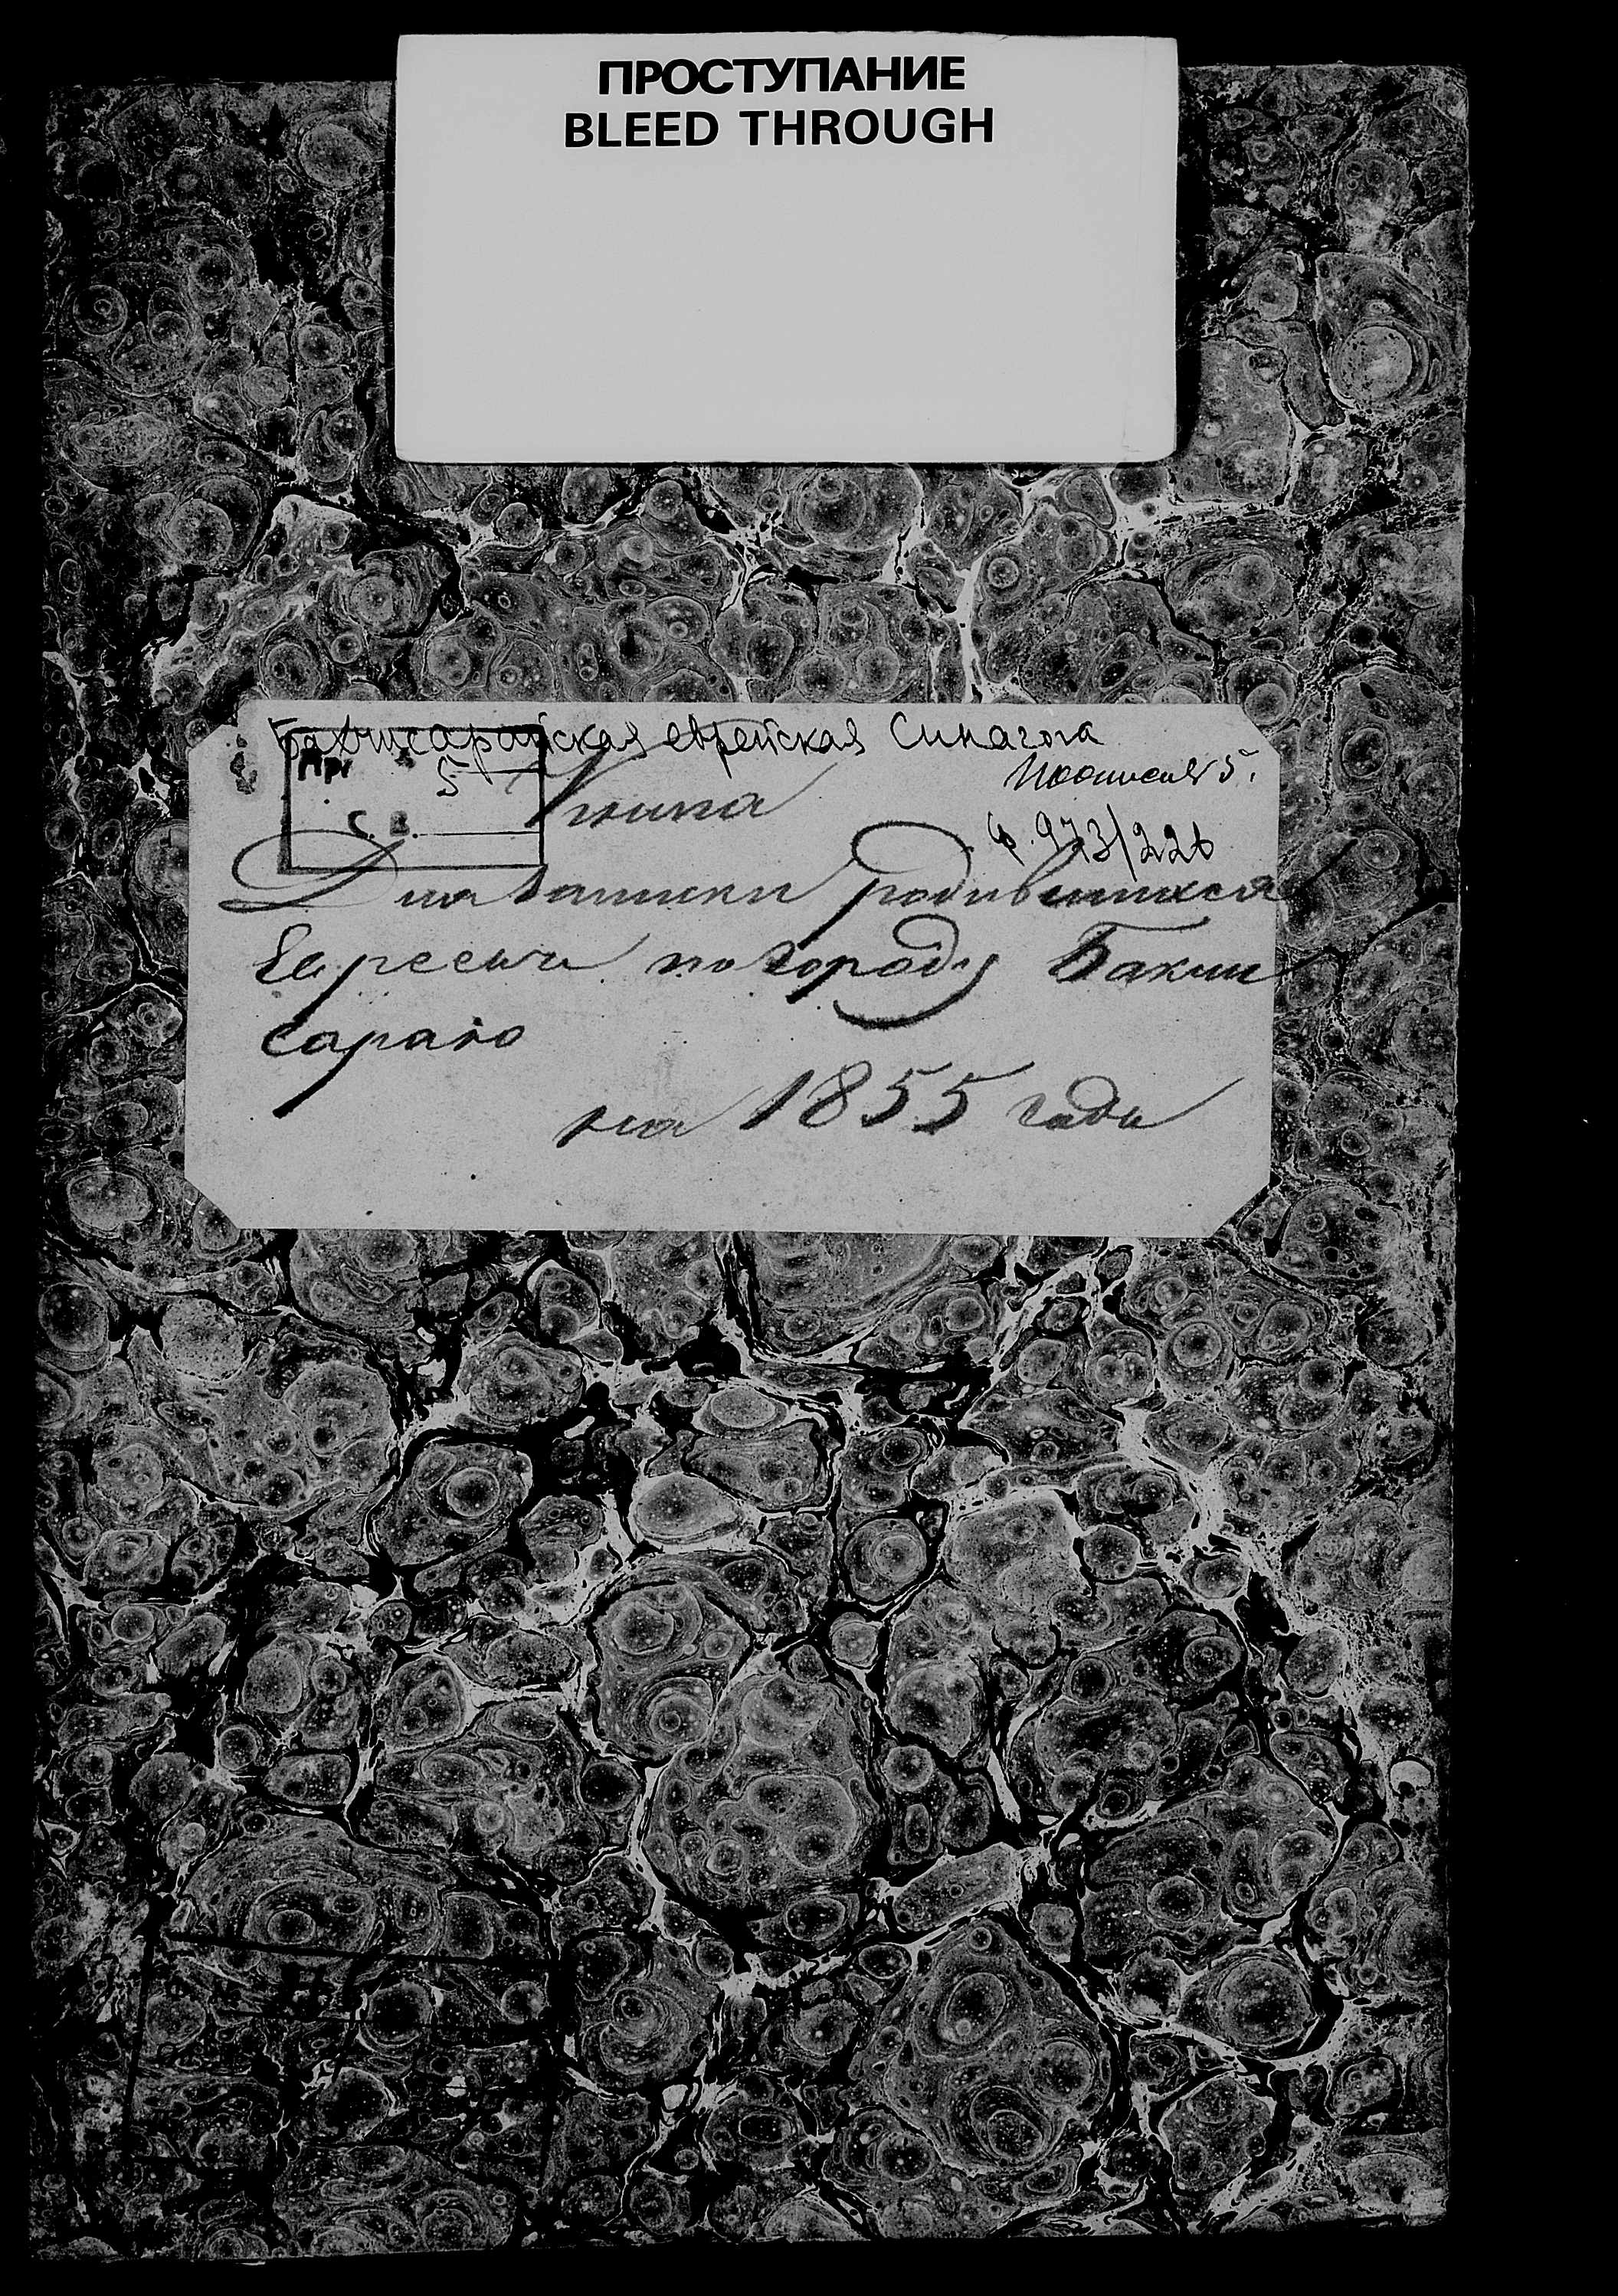 ПРОСТУПАНИЕ
BLEED THROUGH
Бахчисарайская еврейская Синагога
5
Книга
ф. 973/226
Для записки родившихся
Евреевъ по городу Бакчи
сараю
на 1855 годъ